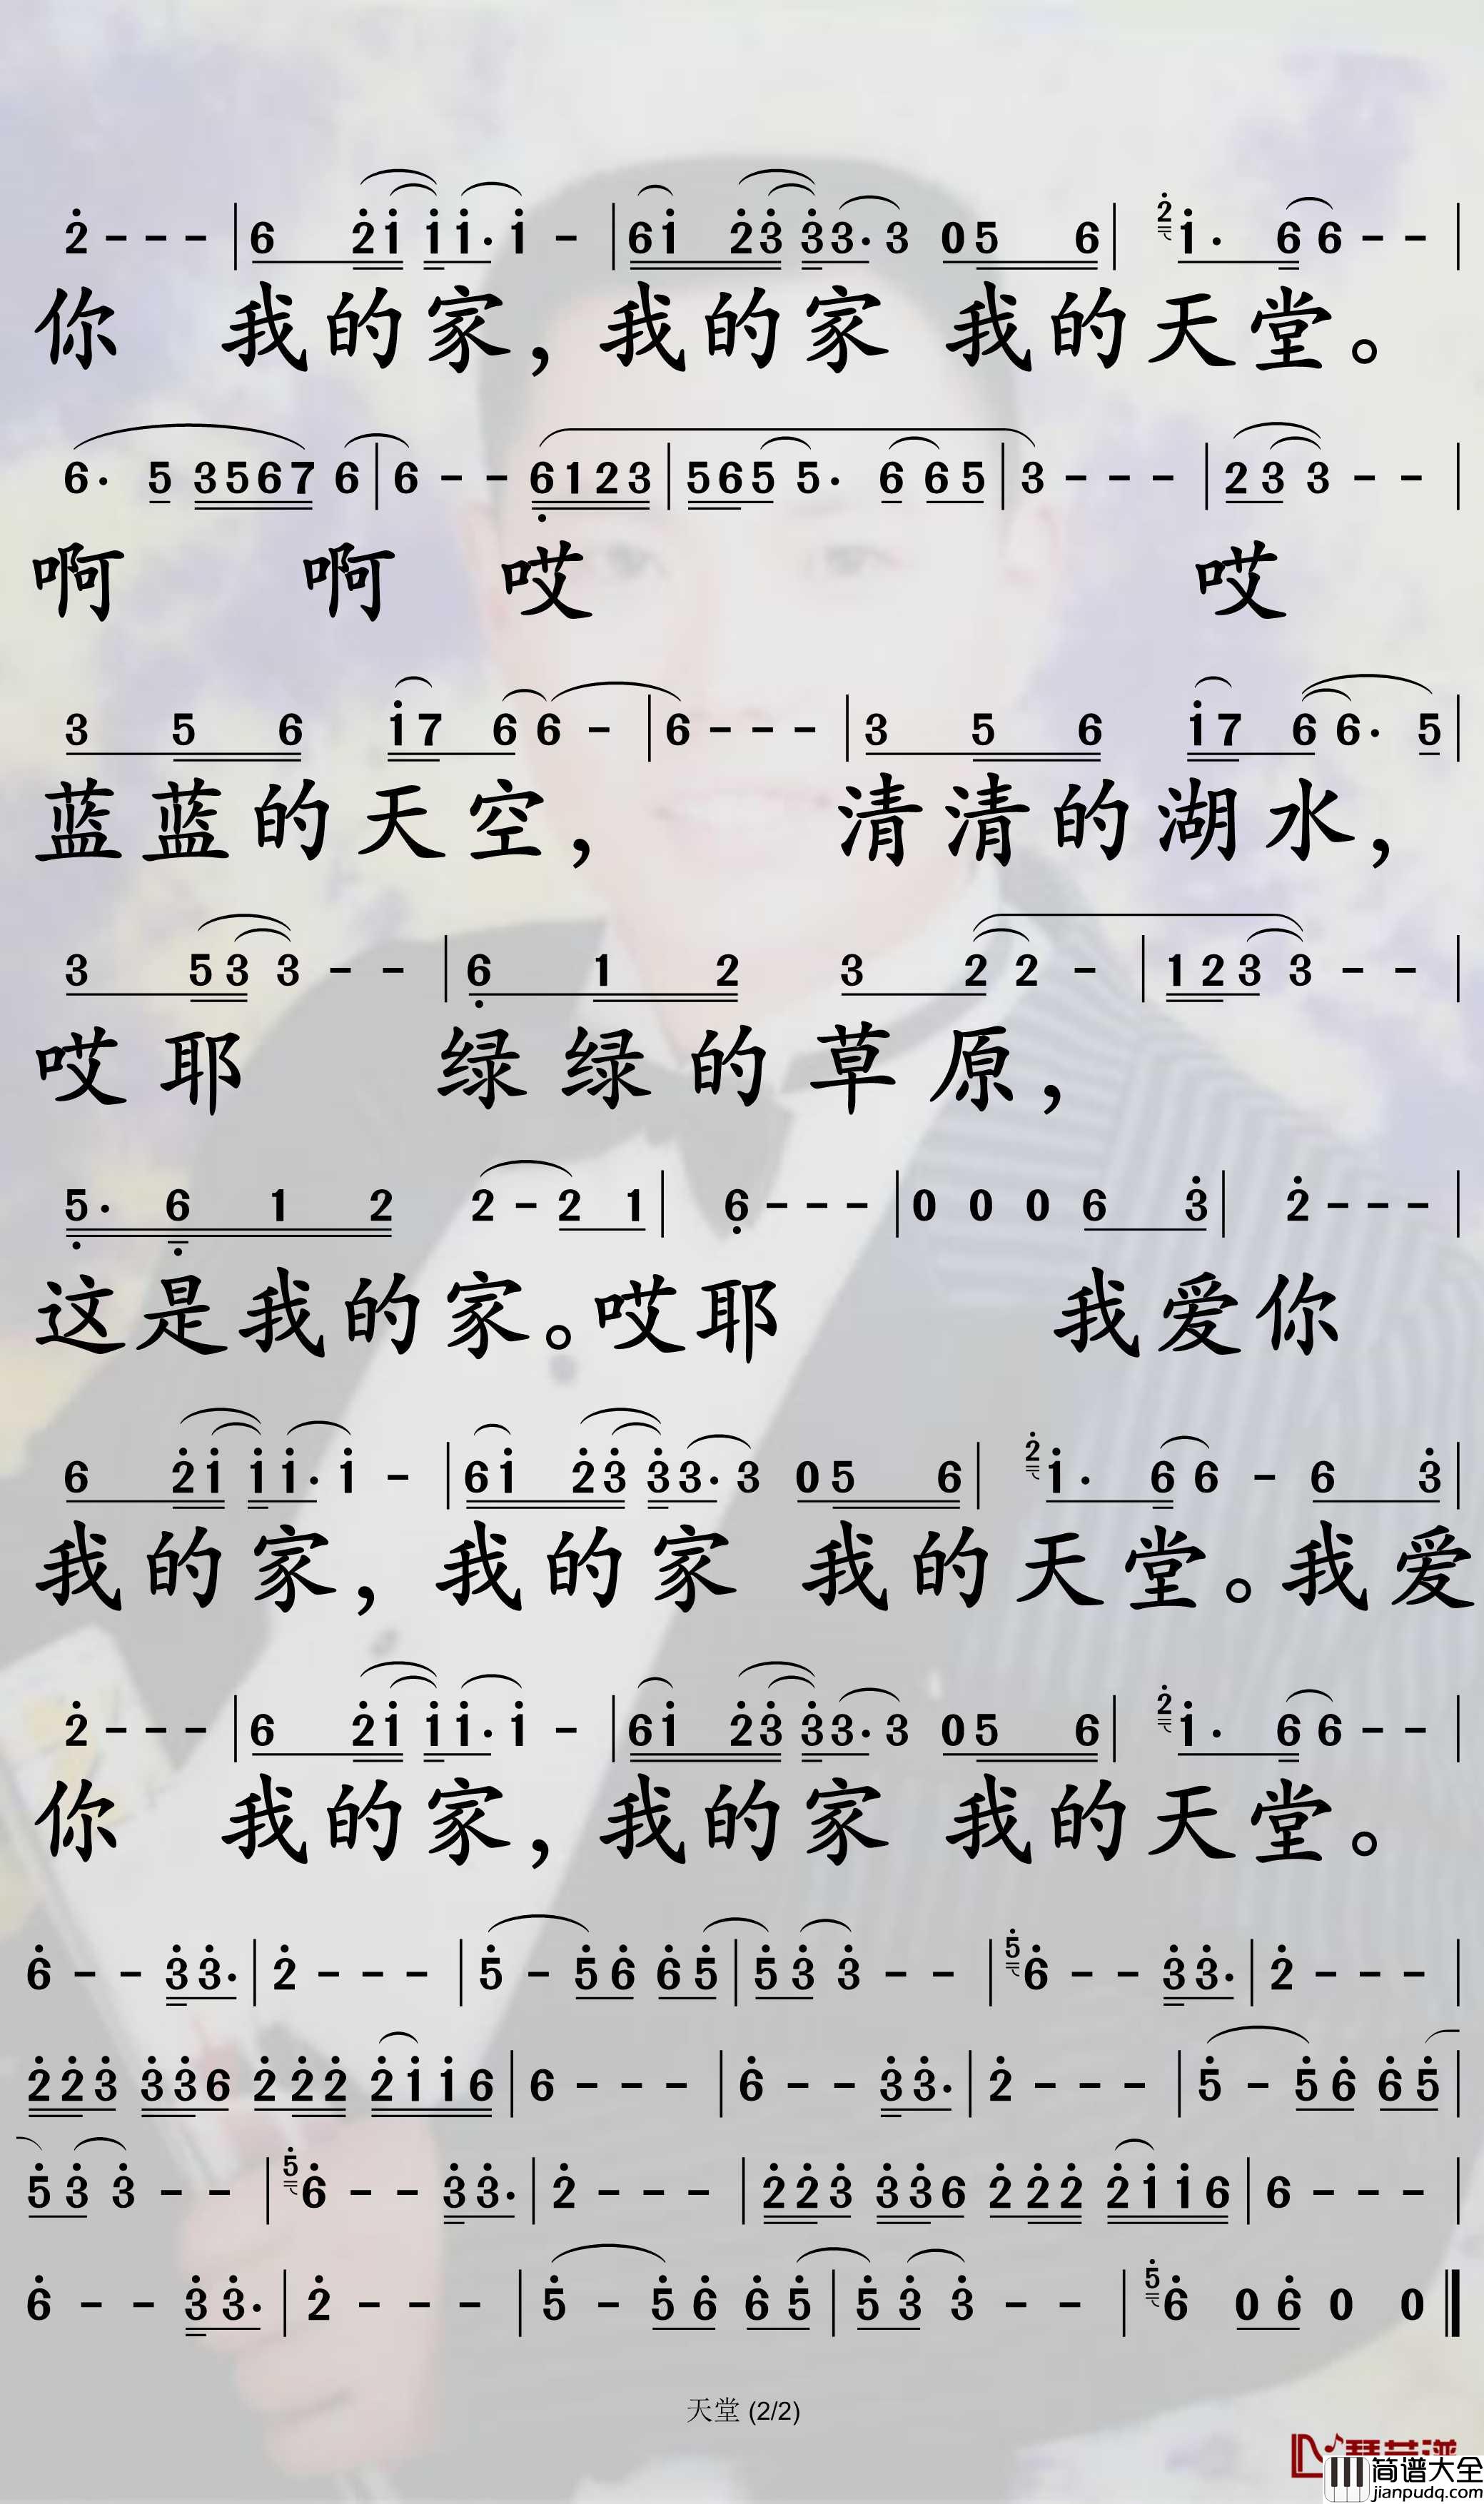 2 - - - | 6 2 1 1 1 · 1 - | 6 1 2 3 3 3 · 3 0 5 6 | 2 1 · 6 6 - - |
你 我的家，我的家 我的天堂。
6 · 5 3 5 6 7 6 | 6 - - 6 1 2 3 | 5 6 5 5 · 6 6 5 | 3 - - - | 2 3 3 - - |
啊 啊 哎 哎
3 5 6 1 7 6 6 - | 6 - - - | 3 5 6 1 7 6 6 · 5 |
蓝蓝的天空， 清清的湖水，
3 5 3 3 - - | 6 1 2 3 2 2 - | 1 2 3 3 - - |
哎耶 绿绿的草原，
5 · 6 1 2 2 - 2 1 | 6 - - - | 0 0 0 6 3 | 2 - - - |
这是我的家。哎耶 我爱你
6 2 1 1 1 · 1 - | 6 1 2 3 3 3 · 3 0 5 6 | 2 1 · 6 6 - 6 3 |
我的家，我的家 我的天堂。我爱
2 - - - | 6 2 1 1 1 · 1 - | 6 1 2 3 3 3 · 3 0 5 6 | 2 1 · 6 6 - - |
你 我的家，我的家 我的天堂。
6 - - 3 3 · | 2 - - - | 5 - 5 6 6 5 | 5 3 3 - - | 5 6 - - 3 3 · | 2 - - - |
2 2 3 3 3 6 2 2 2 2 1 1 6 | 6 - - - | 6 - - 3 3 · | 2 - - - | 5 - 5 6 6 5 |
5 3 3 - - | 5 6 - - 3 3 · | 2 - - - | 2 2 3 3 3 6 2 2 2 2 1 1 6 | 6 - - - |
6 - - 3 3 · | 2 - - - | 5 - 5 6 6 5 | 5 3 3 - - | 5 6 0 6 0 0 ‖
天堂 (2/2)
简谱大全
jianpudq.com